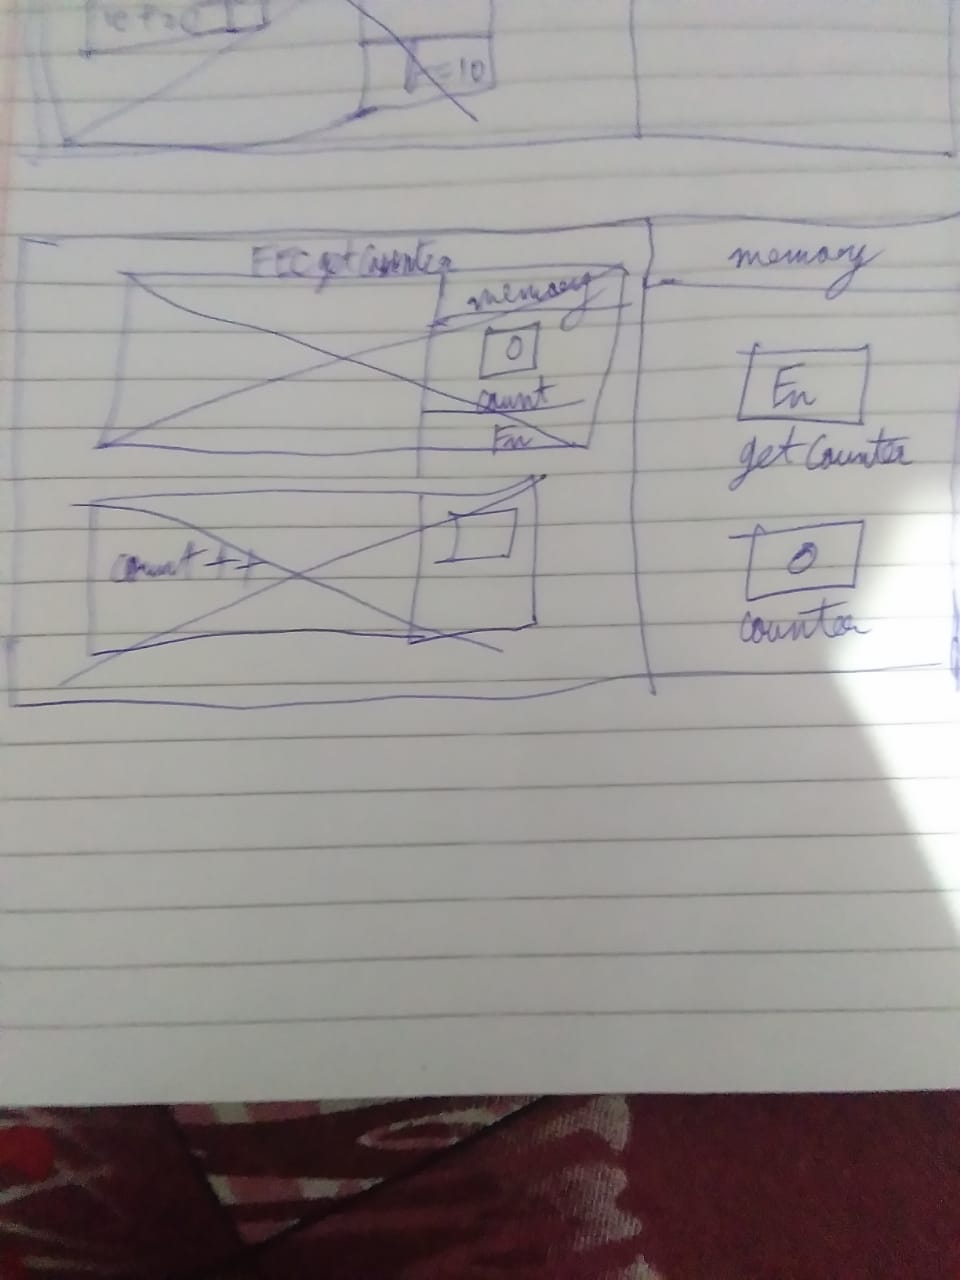 =10
FEC getCounter
memory
0
count
Fn
count ++
memory
Fn
getCounter
0
counter